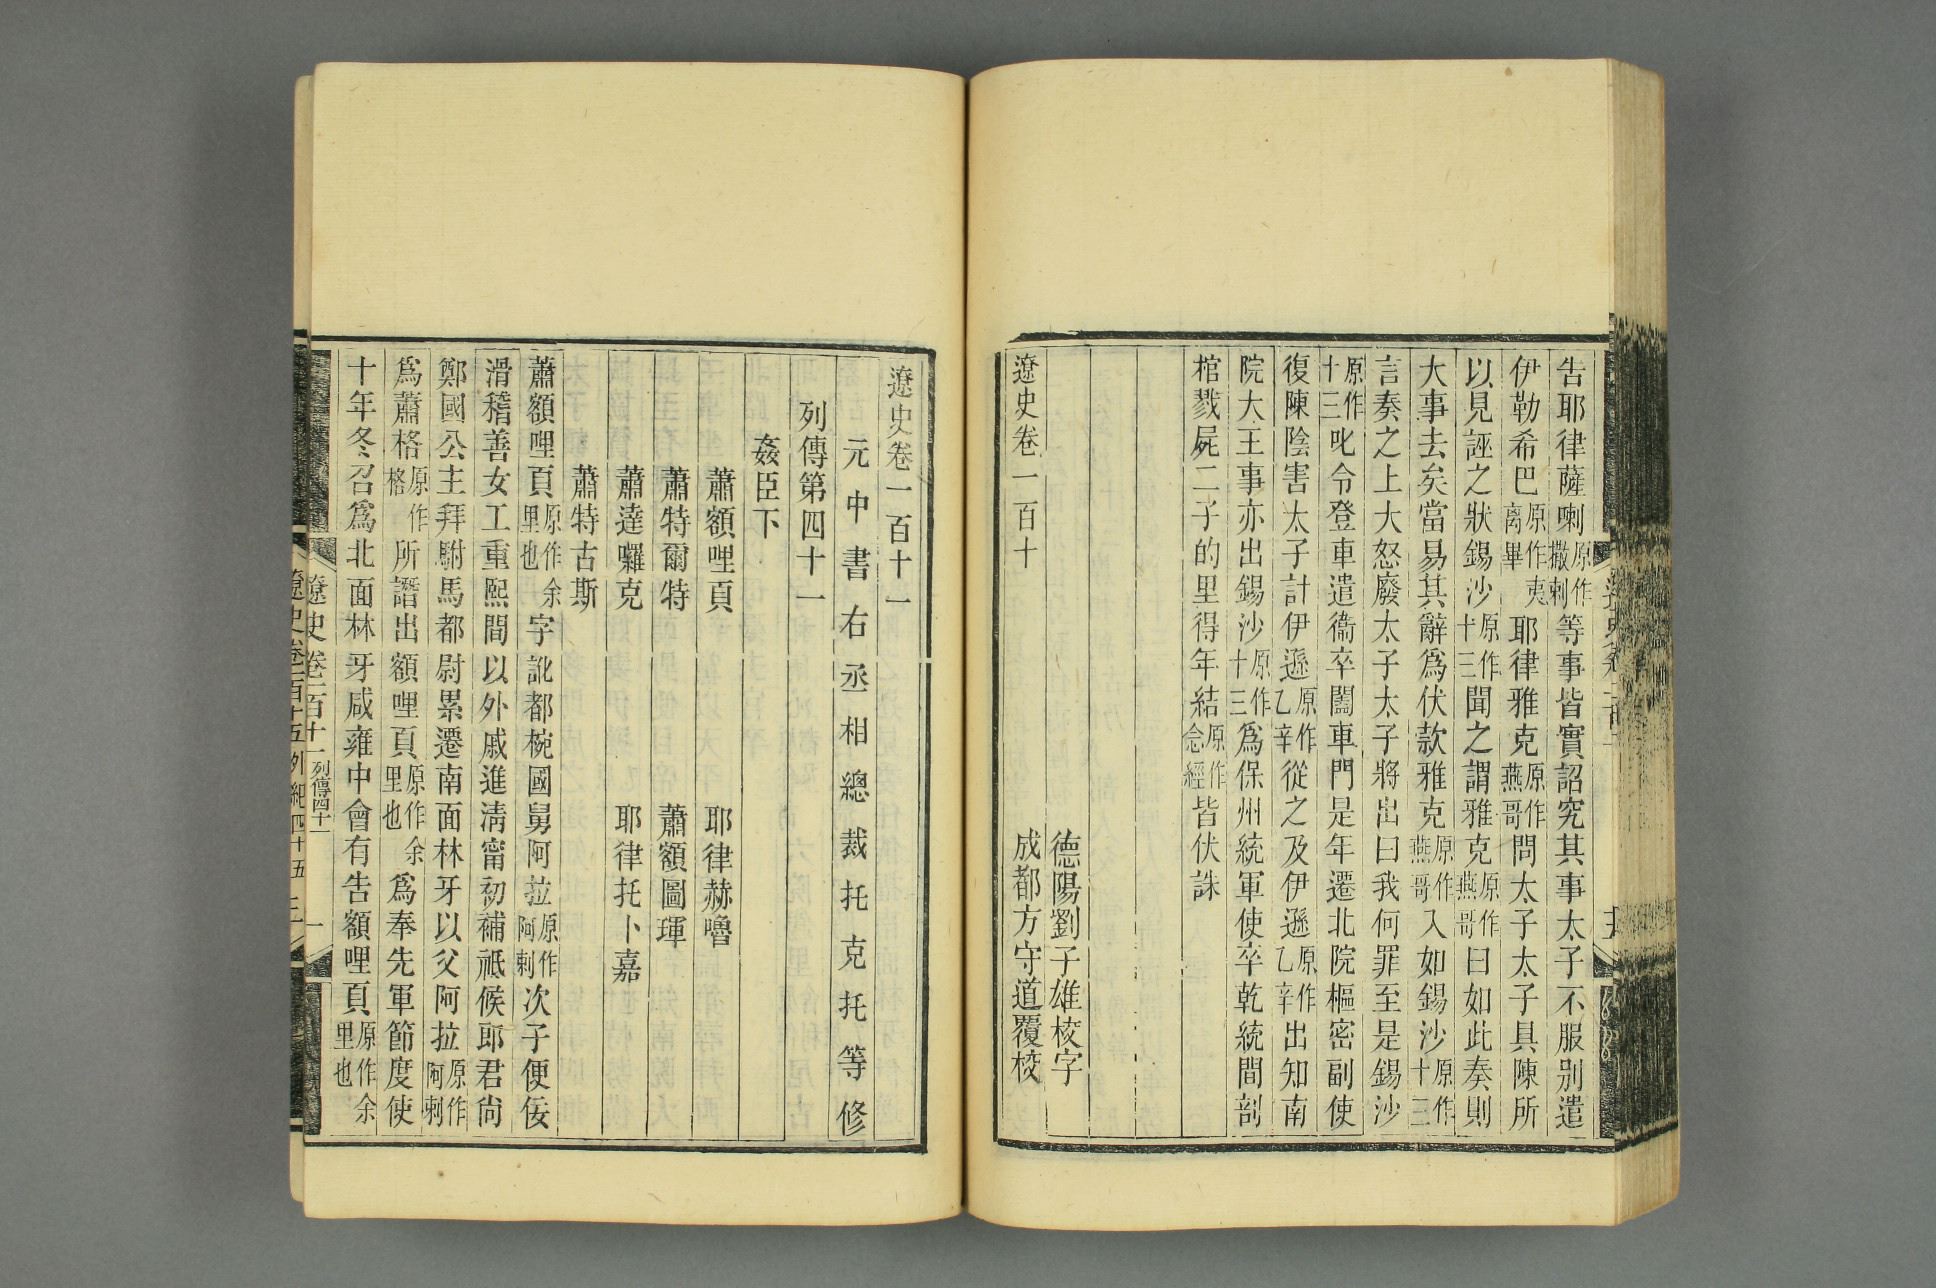 告耶律薩喇原作撒剌等事皆實詔究其事太子不服别遣
伊勒希巴原作夷离畢耶律雅克原作燕哥問太子太子具陳所
以見誣之狀錫沙原作十三聞之謂雅克原作燕哥曰如此奏則
大事去矣當易其辭爲伏款雅克原作燕哥入如錫沙原作十三
言奏之上大怒廢太子太子將出曰我何罪至是錫沙
原作十三叱令登車遣衞卒闔車門是年遷北院樞密副使
復陳陰害太子計伊遜原作乙辛從之及伊遜原作乙辛出知南
院大王事亦出錫沙原作十三爲保州統軍使卒乾統間剖
棺戮屍二子的里得年結原作念經皆伏誅
德陽劉子雄校字
遼史卷一百十
成都方守道覆校
遼史卷一百十一
元中書右丞相總裁托克托等修
列傳第四十一
姦臣下
蕭額哩頁
耶律赫嚕
蕭特爾特
蕭額圖琿
蕭達囉克
耶律托卜嘉
蕭特古斯
蕭額哩頁原作余里也字訛都椀國舅阿拉原作阿剌次子便佞
滑稽善女工重熙間以外戚進清甯初補祇候郎君尙
鄭國公主拜駙馬都尉累遷南面林牙以父阿拉原作阿剌
爲蕭格原作格所譖出額哩頁原作余里也爲奉先軍節度使
十年冬召爲北面林牙咸雍中會有告額哩頁原作余里也
遼史卷一百十一
列傳四十一
一